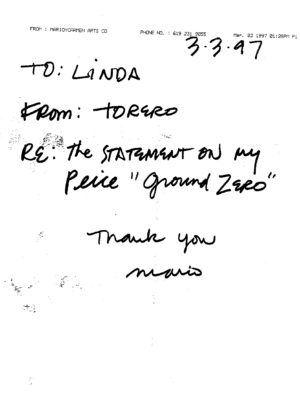 FROM : MARIOYCARMEN ARTS CO PHONE NO. : 619 231 9055 Mar. 02 1997 01:28PM P1
3.3.97
TO: LINDA
FROM: TORERO
RE: The STATEMENT ON my
Peice "Ground ZERO"
Thank you
mario